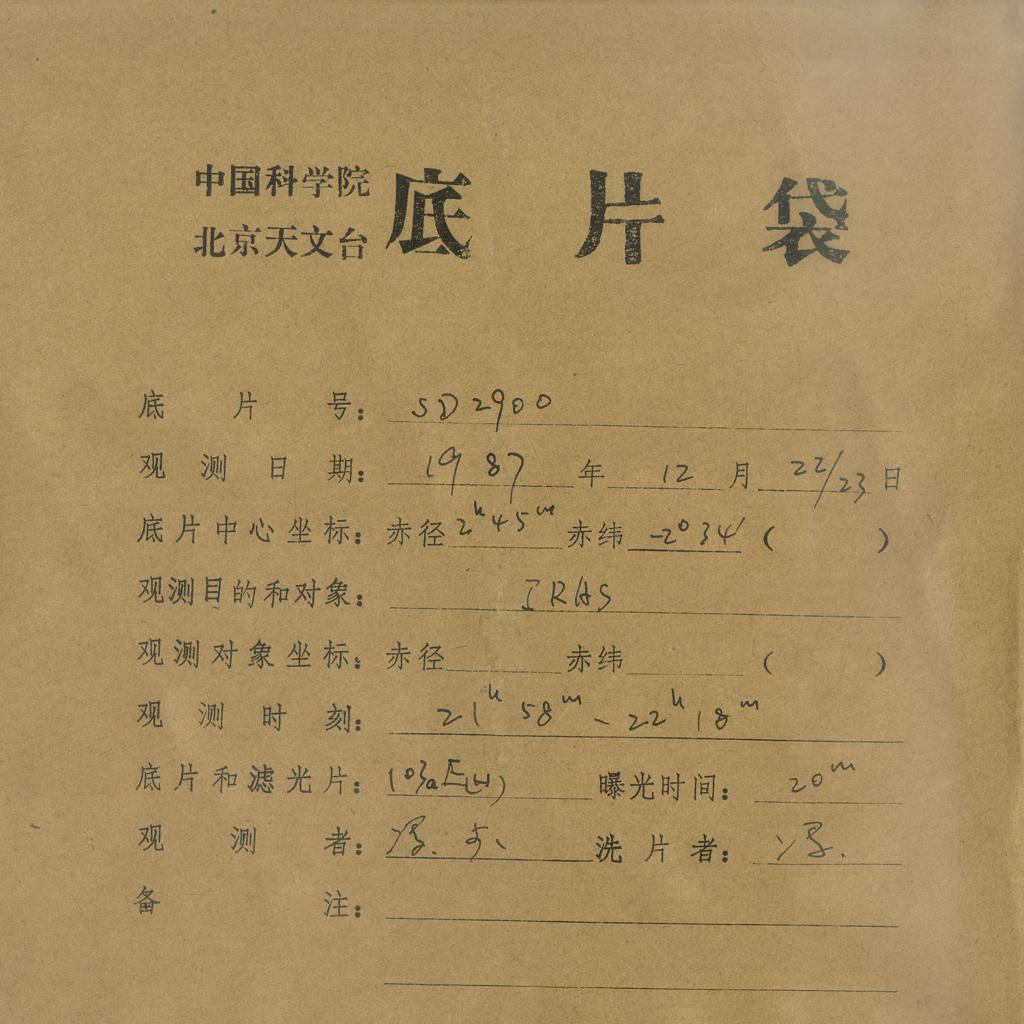 中国科学院
北京天文台
底片袋
底片号： SD2900
观测日期： 1987 年 12 月 22/23 日
底片中心坐标： 赤径 2h45m 赤纬 -2°34′ ( )
观测目的和对象： IRAS
观测对象坐标： 赤径 赤纬 ( )
观测时刻： 21h58m ~ 22h18m
底片和滤光片： 103aE 曝光时间： 20m
观测者： 洗片者：
备注：